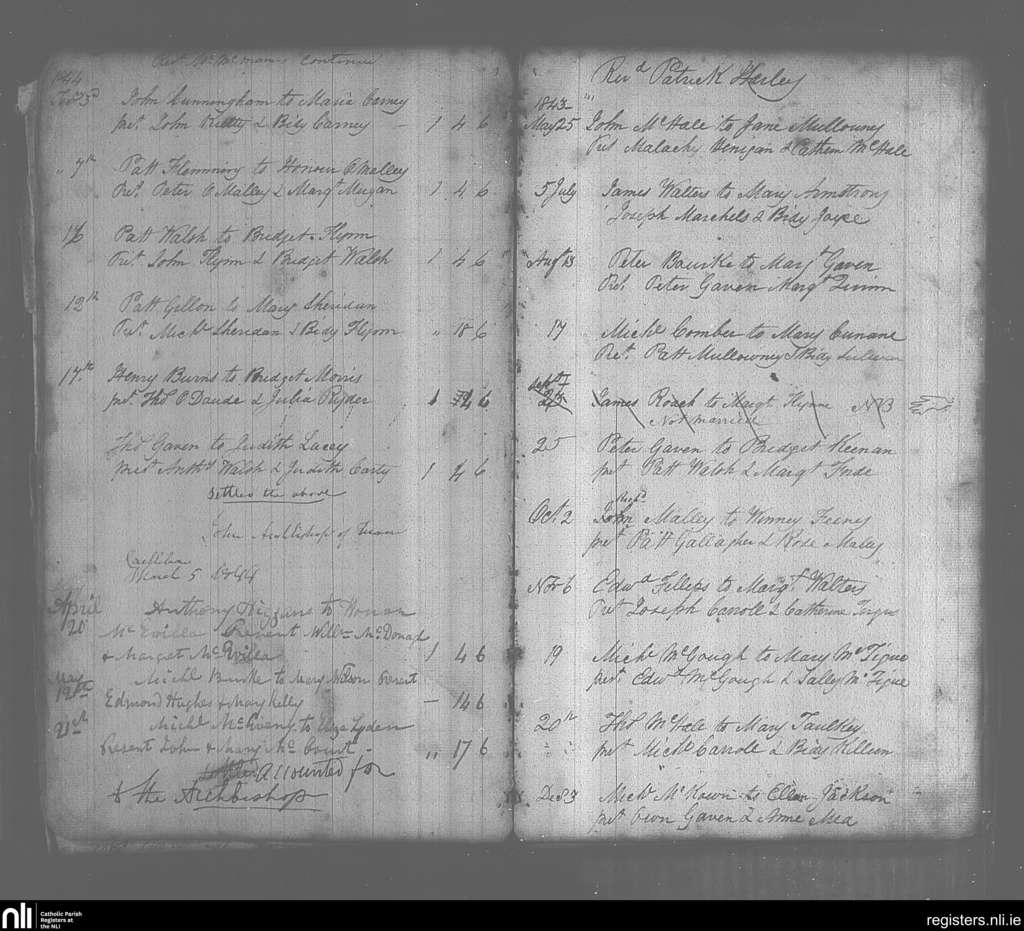 Revd Mr McManus Continued
1844
Feb 3d John Cunningham to Maria Carney
pret. John Reilly & Bidy Carney – 1 4 6
" 7th Patt Flemming to Honour O Malley
Pret. Peter O Malley & Margt Mugan 1 4 6
16 Patt Walsh to Bridget Flynn
Pret. John Flynn & Bridget Walsh 1 4 6
12th Patt Gillon to Mary Sheridan
Pret. Michl Sheridan & Bidy Flynn " 18 6
17th Henry Burns to Bridget Morris
pret. Thos O Daude & Julia Ryder 1 4 6
Thos Gaven to Judith Lacey
pret Anthy Walsh & Judith Carty 1 4 6
Settled the above
John Archbishop of Tuam
March 5 1844
April
20 Anthony Higgans to Honan
McEvilla Present Willm McDonald
& Marget McEvilla 1 4 6
May
12th Michl Burke to Mary Present
Edmond Hughes & Mary Kelly – 14 6
21st Michl McGreeny to Eliza Lyden
Present John & Mary Mc Court – " 17 6
settled Accounted for
to the Archbishop
Revd Patrick Harley
1843
May 25 John McHale to Jane Mullowny
Pret Malachy Henigan & Cathern McHale
5 July James Walters to Mary Armstrong
Joseph Marchels & Bidy Joyce
Augt 13 Peter Bourke to Margt Gaven
Pret. Peter Gaven Margt
17 Michl Comber to Mary Cunane
Pret. Patt Mullowney & Bidy
Sept 7
James Roach to Margt Flynne No 3
Not married
25 Peter Gaven to Bridget Keenan
pret Patt Walsh & Margt
Oct. 2 John Malley to Winney Feeney
pret Patt Gallagher & Rose Malley
Nov 6 Edwd Fillips to Margt Walters
Pret Joseph Carroll & Catherine Fergus
19 Michl McGough to Mary McTigue
pret. Edwd McGough & Salley McTigue
20th Thos McHale to Mary Taulkey
pret Michl Carroll & Bidy Killeen
Decr 3 Michl McKown to Ellen Jackson
pret Owen Gaven & Anne Mea
nli
Catholic Parish
Registers at
the NLI
registers.nli.ie